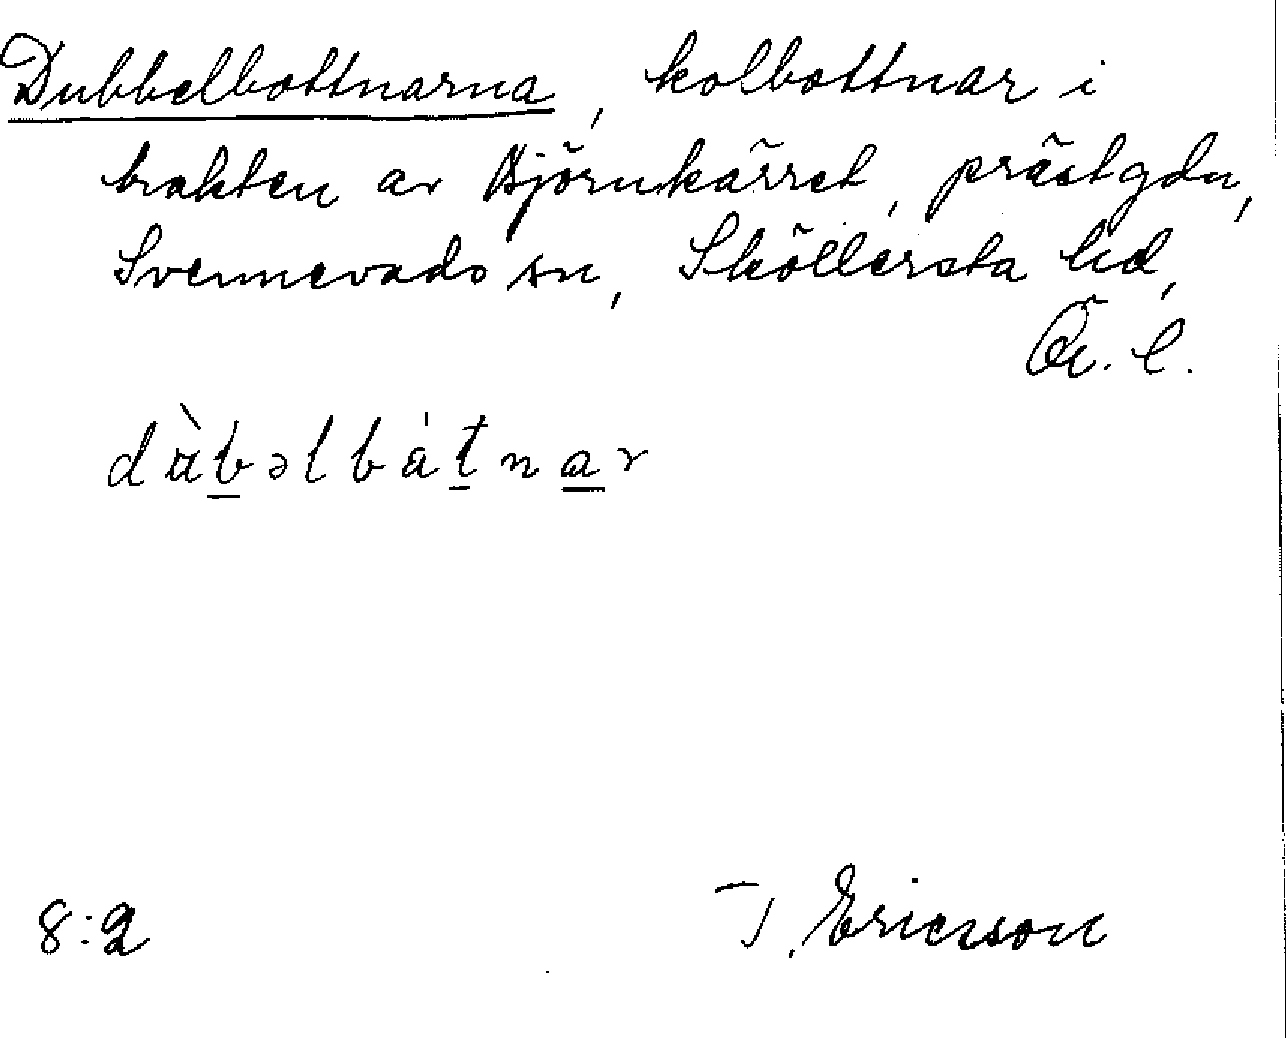 Dubbelbottnarna, kolbottnar i
trakten av Björnkärret, prästgdn,
Svennevads sn, Sköllersta hd,
Ör. l.
dàbəlbátnar
8:2
T. Ericson